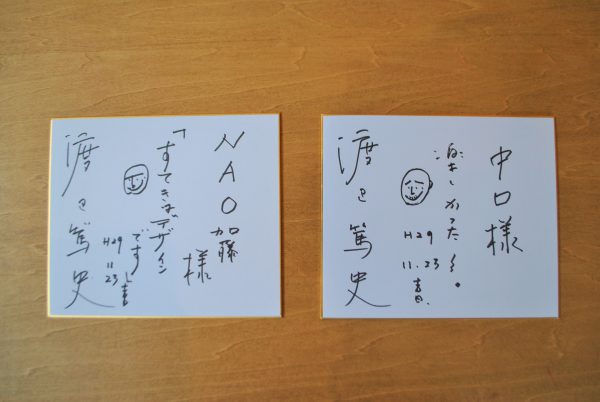 NAO加藤
様
「すてきなデザイン
です」
H29
11
23
書
渡辺篤史
中口様
楽しかった
H29
11.23
書
渡辺篤史